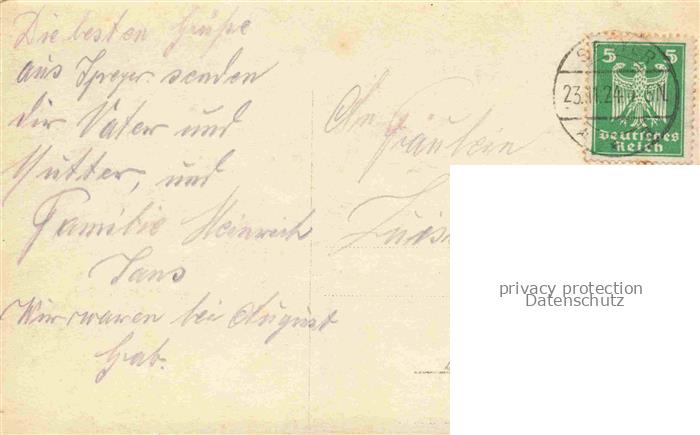 Die besten Grüße
aus Speyer senden
dir Vater und
Mutter, und
Familie Heinrich
Jans
Wir waren bei August
Grab.
An
Fräulein
Luis
5 5
SPEYER
23.11.24
Deutsches
Reich
privacy protection
Datenschutz